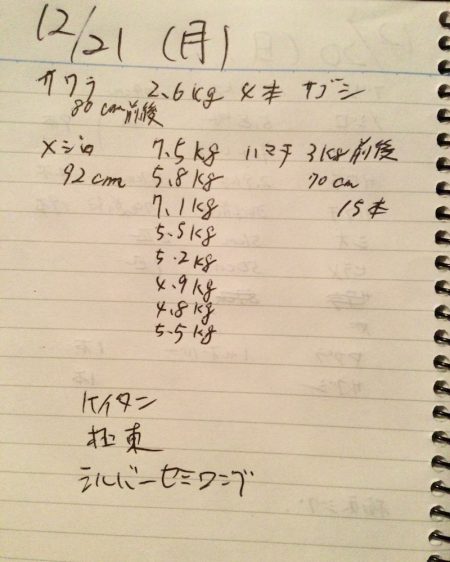 12/21 (月)
サワラ 2.6kg 4本 サゴシ
80cm前後
メジロ 7.5kg ハマチ 3kg前後
92cm 5.8kg 70cm
7.1kg 15本
5.5kg
5.2kg
4.9kg
4.8kg
5.5kg
ケイタン
極東
シルバーセミロング